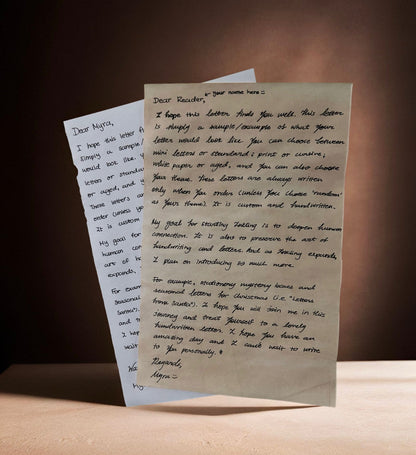 your name here :)
Dear Reader,
I hope this letter finds you well. This letter
is simply a sample/example of what your
letter would look like. You can choose between
mini letters or standard; print or cursive;
white paper or aged, and you can also choose
your theme. These letters are always written
only when you order (unless you choose "random"
as your theme). It is custom and handwritten.
My goal for starting is to deepen human
connection. It is also to preserve the art of
handwriting and letters. And as expands,
I plan on introducing so much more.
For example, stationery mystery boxes and
seasonal letters for Christmas (i.e. "Letters
from Santa"). I hope you will join me in this
journey and treat yourself to a lovely
handwritten letter. I hope you have an
amazing day and I can't wait to write
to you personally.
Regards,
Myra :)
Dear Myra,
I hope this letter
simply a sample/
would look like.
letters or
or aged, and
These letters
order (unless
It is custom
My goal for
human
expands,
For
seasonal
Santa").
and
I
wait